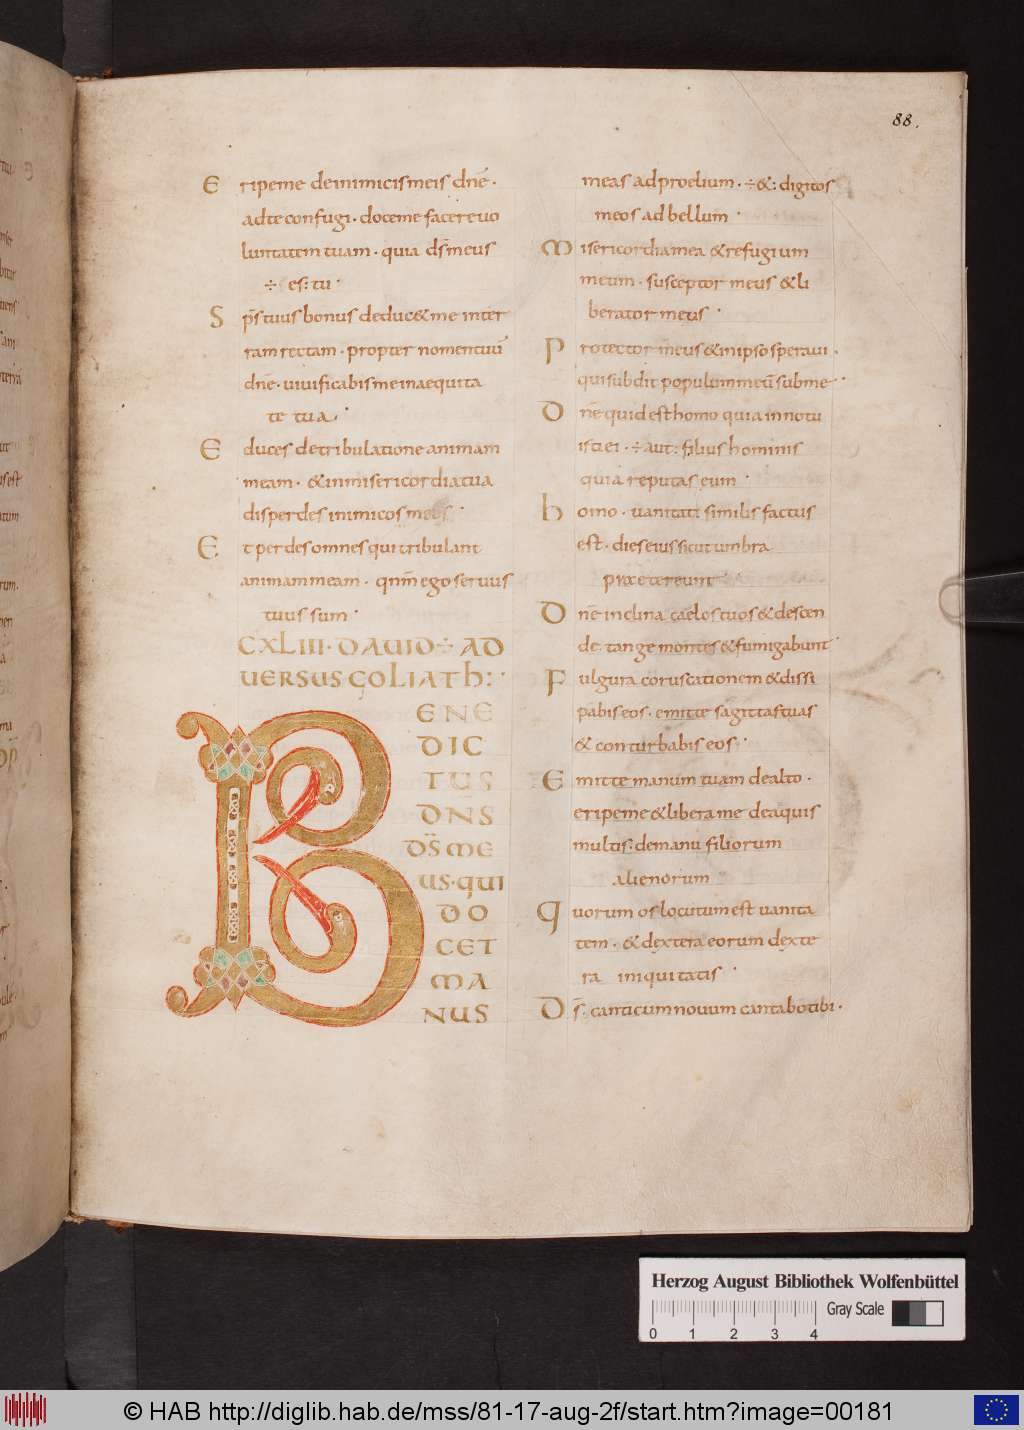 88.
Eripeme deinimicismeis dnē·
adteconfugi · doceme facereuo
luntatem tuam · quia ds̄meus
÷ es: tu ·
Sps̄tuus bonus deduc&me inter
ram rectam · propter nomentuū
dnē · uiuificabismeinaequita
te tua ·
Educes detribulatione animam
meam · &inmisericordiatua
disperdes inimicos meos ·
Et perdesomnesquitribulant
animammeam · qnm̄ egoseruus
tuus sum ·
CXLIII · DAUID ÷ AD
UERSUS GOLIATH: ·
BENE
DIC
TUS
DN̄S
DS̄ ME
US · QUI
DO
CET
MA
NUS
meas adproelium · ÷&: digitos
meos ad bellum ·
Misericordiamea &refugium
meum · susceptor meus &li
berator meus ·
Protector meus &inipsosperaui ·
quisubdit populummeū subme ·
Dnē quidesthomo quiainnotu
istiei · ÷aut: filius hominis
quia reputas eum ·
homo · uanitati similis factus
est · dieseiussicut umbra
praetereunt
Dnē inclina caelostuos &descen
de tange montes &fumigabunt ·
Fulgura coruscationem &dissi
pabiseos · emitte sagittastuas
& conturbabis eos ·
Emitte manum tuam dealto ·
eripeme &libera me deaquis
multis: demanu filiorum
alienorum
Quorum oslocutumest uanita
tem · &dextera eorum dexte
ra iniquitatis ·
Ds̄: canticumnouum cantabotibi ·
Herzog August Bibliothek Wolfenbüttel
Gray Scale
0 1 2 3 4
© HAB http://diglib.hab.de/mss/81-17-aug-2f/start.htm?image=00181